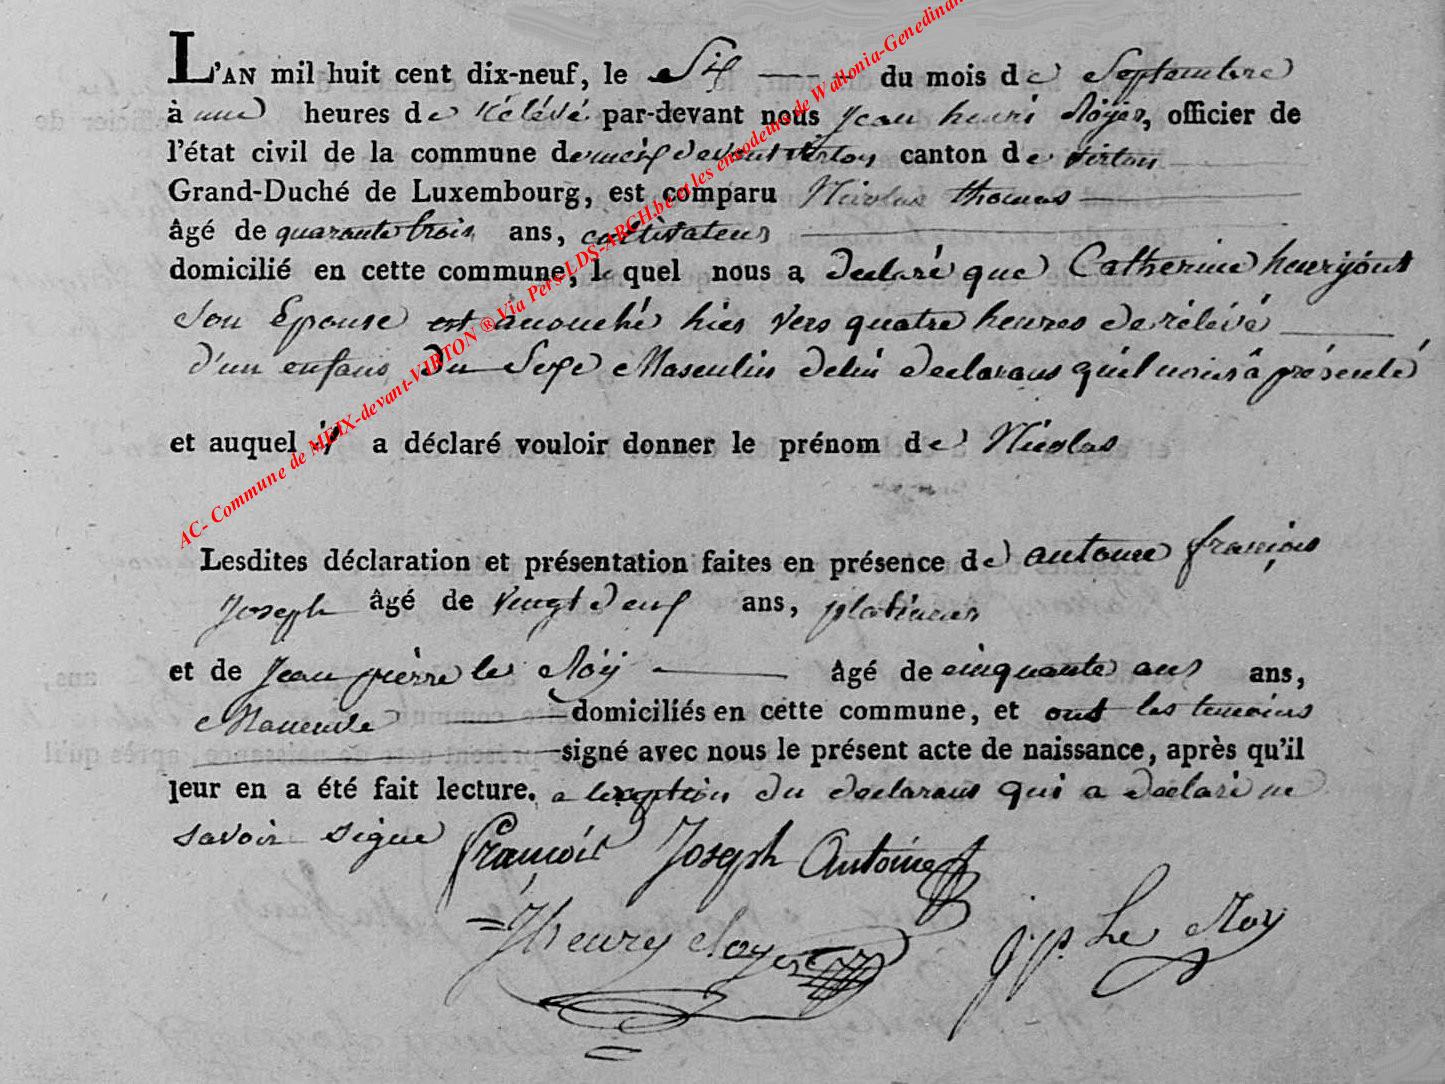 L'AN mil huit cent dix-neuf, le Six du mois de Septembre
à une heures de rélévé par-devant nous Jean henri Röÿer, officier de
l'état civil de la commune de meix devant virton canton de virton
Grand-Duché de Luxembourg, est comparu Nicolas thomas
âgé de quarante trois ans, cultivateur
domicilié en cette commune, le quel nous a declaré que Catherine henrijont
Son Epouse est acouché hier vers quatre heures de rélévé
d'un enfans du Sexe Masculin delui declarans quil nous â présenté
et auquel il a déclaré vouloir donner le prénom de Nicolas
Lesdites déclaration et présentation faites en présence de antoine françois
Joseph âgé de vingt neuf ans, platineur
et de Jean pierre le Roÿ âgé de cinquante ans ans,
Maneuvre domiciliés en cette commune, et ont les temoins
signé avec nous le présent acte de naissance, après qu'il
leur en a été fait lecture. a lexeption du declarans qui a declaré ne
savoir signe
françois Joseph Antoine
J henry Royer
j.p. Le Roy
AC- Commune de MEIX-devant-VIRTON ® Via Pers-LDS-ARCH.be et les encodeurs de Wallonia-Genedinan